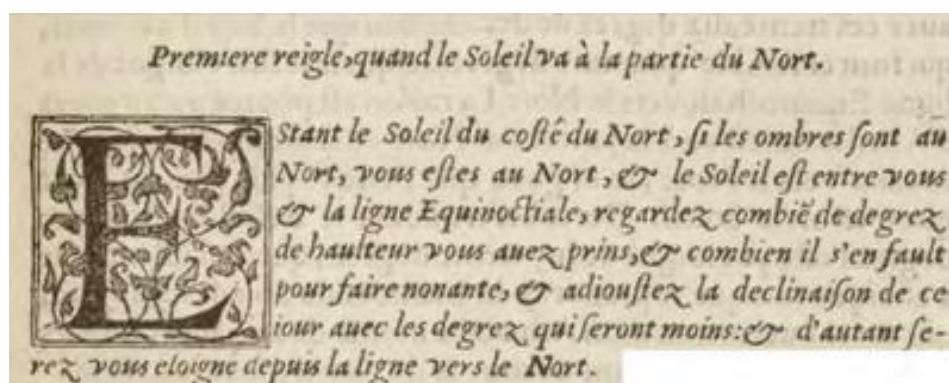 Premiere reigle, quand le Soleil va à la partie du Nort.
EStant le Soleil du coſté du Nort, ſi les ombres ſont au
Nort, vous eſtes au Nort, & le Soleil eſt entre vous
& la ligne Equinoctiale, regardez combiẽ de degrez
de haulteur vous auez prins, & combien il s'en fault
pour faire nonante, & adiouſtez la declinaiſon de ce
iour auec les degrez qui ſeront moins: & d'autant ſe-
rez vous eloigné depuis la ligne vers le Nort.